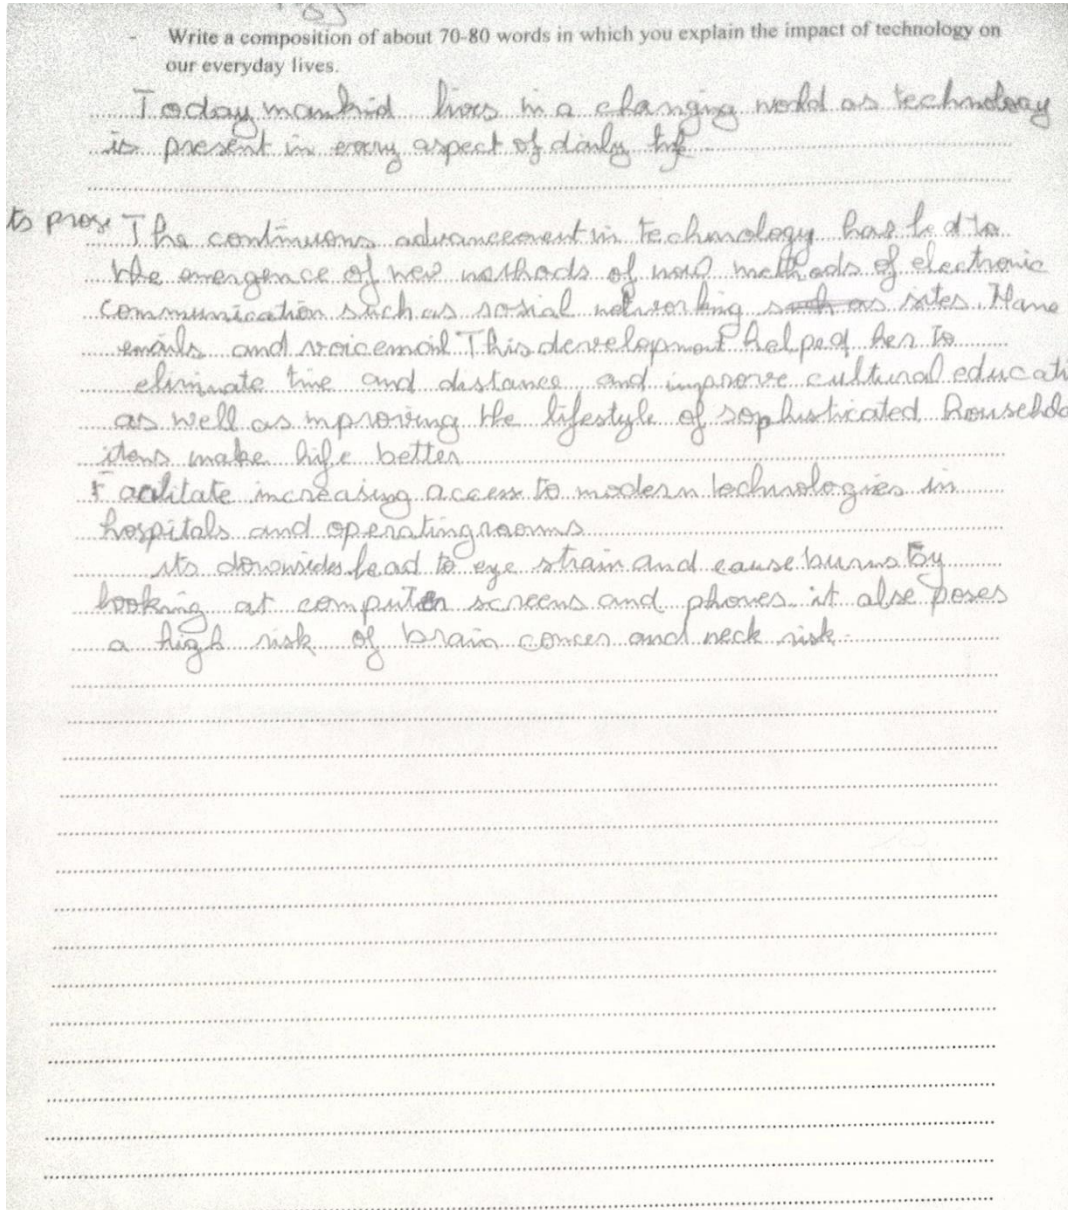 - Write a composition of about 70-80 words in which you explain the impact of technology on
our everyday lives.
Today mankid lives in a changing world as technology
is present in every aspect of daily life
its pros The continuous advancement in technology has led to
the emergence of new methods of new methods of electronic
communication such as sosial networking such as sites
emails and voicemail This development helped her to
eliminate time and distance and improve cultural educati
as well as mproving the lifestyle of sophisticated househo
items make life better
Faalitate increasing access to modern technologies in
hospitals and operating rooms
its downsides lead to eye strain and cause burns by
looking at computer screens and phones it alse poses
a high risk of brain concer and neck risk.